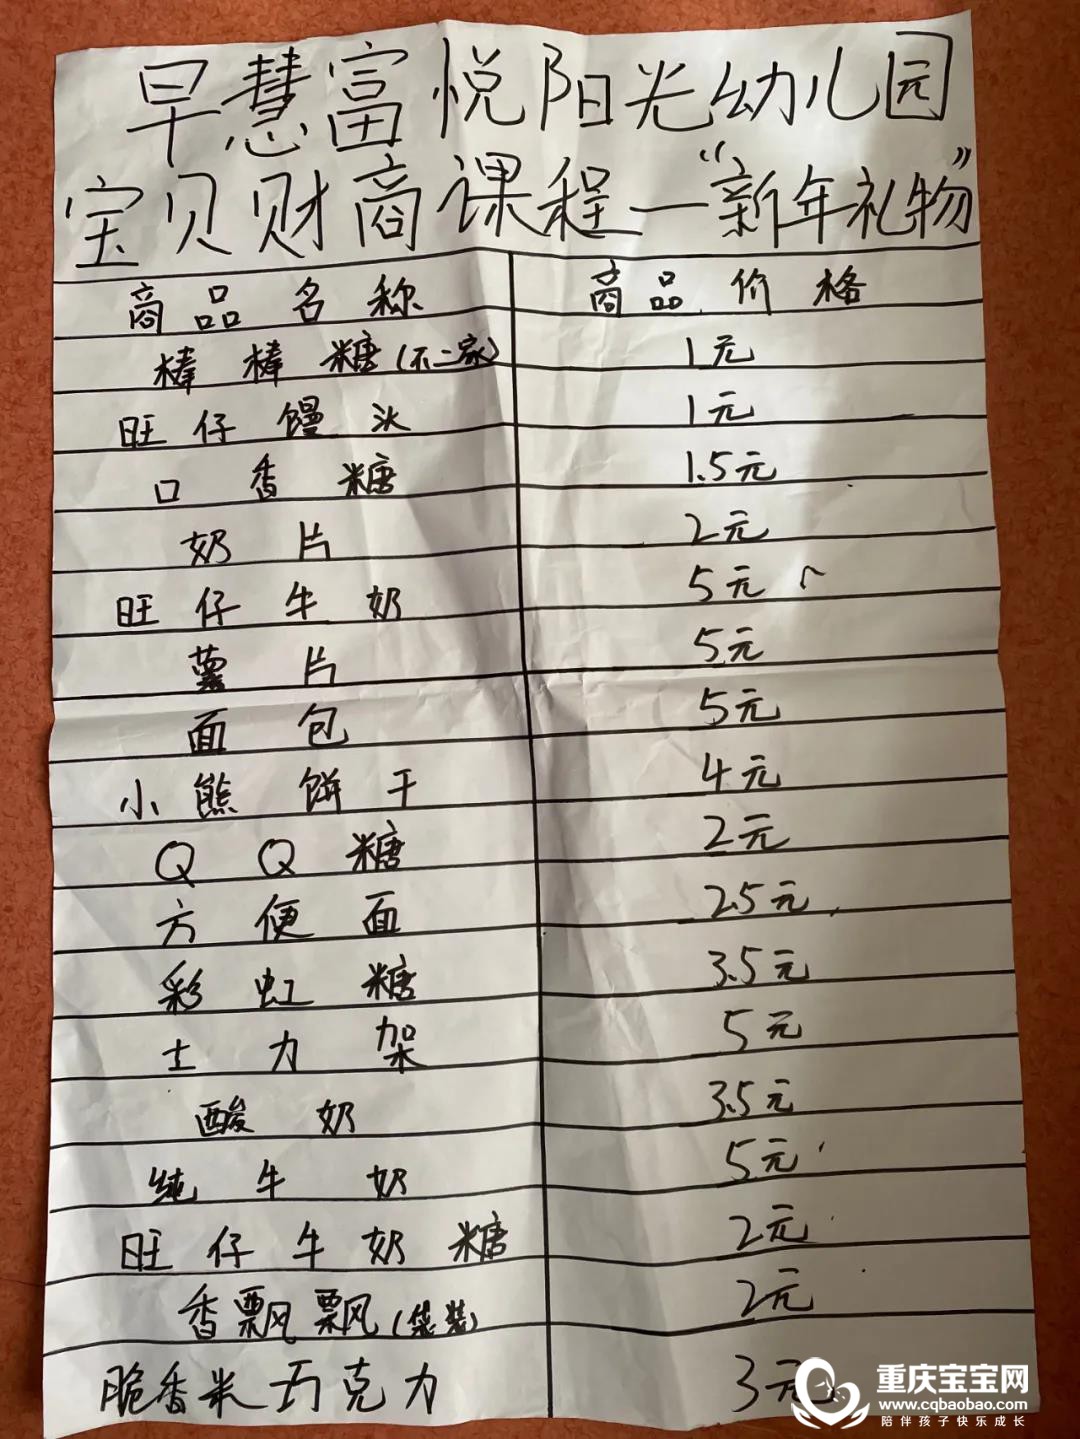 早慧富悦阳光幼儿园
宝贝财商课程—“新年礼物”
商品名称 商品价格
棒棒糖(不二家) 1元
旺仔馒头 1元
口香糖 1.5元
奶片 2元
旺仔牛奶 5元
薯片 5元
面包 5元
小熊饼干 4元
QQ糖 2元
方便面 2.5元
彩虹糖 3.5元
士力架 5元
酸奶 3.5元
纯牛奶 5元
旺仔牛奶糖 2元
香飘飘(袋装) 2元
脆香米巧克力 3元
重庆宝宝网
www.cqbaobao.com
陪伴孩子快乐成长